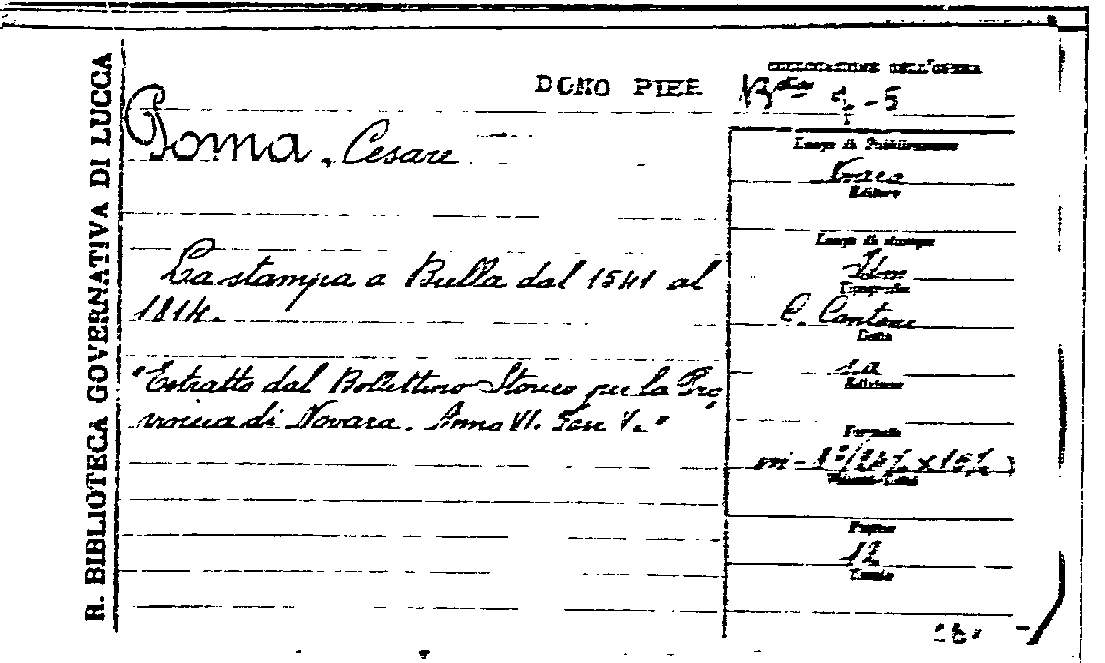 R. BIBLIOTECA GOVERNATIVA DI LUCCA
DONO PIEE
COLLOCAZIONE DELL'OPERA
Roma, Cesare
Luogo di Pubblicazione
Editore
La stampa a Bulla dal 1541 al
1814.
Luogo di stampa
Idm
Tipografia
C. Cantone
Data
"Estratto dal Bollettino Storico per la Pro
vincia di Novara. Anno VI. Fasc V."
Edizione
Formato
Pagine
12